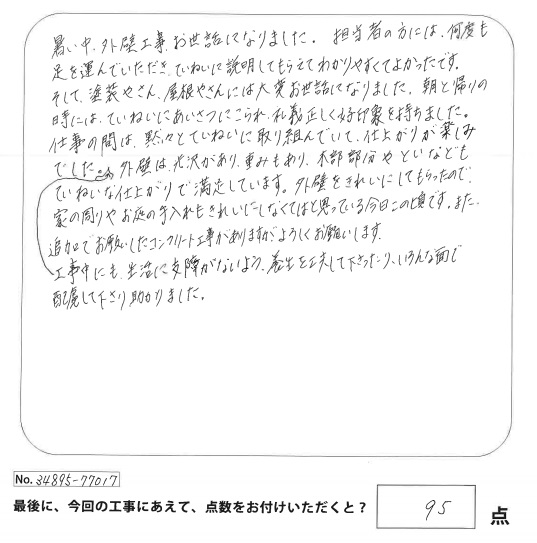 暑い中、外壁工事、お世話になりました。担当者の方には、何度も
足を運んでいただき、ていねいに説明してもらえてわかりやすくてよかったです。
そして、塗装やさん、屋根やさんには大変お世話になりました。朝と帰りの
時には、ていねいにあいさつにこられ、礼義正しく好印象を持ちました。
仕事の間は、黙々とていねいに取り組んでいて、仕上がりが楽しみ
でした。外壁は、光沢があり、重みもあり、木部部分やといなども
ていねいな仕上がりで満足しています。外壁をきれいにしてもらったので、
家の周りやお庭の手入れもきれいにしなくてはと思っている今日この頃です。また、
追加でお願いしたコンクリート工事がありますがよろしくお願いします。
工事中にも、生活に支障がないよう、養生を工夫して下さったり、いろんな面で
配慮して下さり助かりました。
No. 34895-77017
最後に、今回の工事にあえて、点数をお付けいただくと？ 95 点